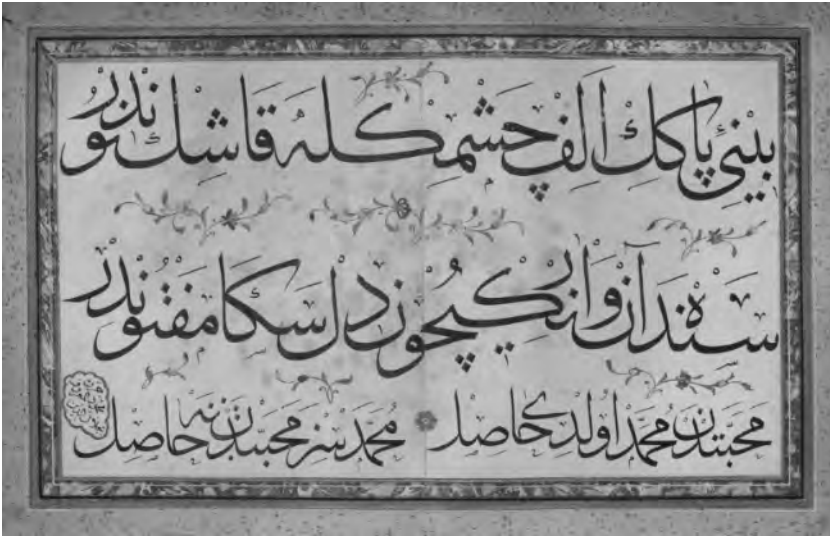 بینئ پاكك الف چشمكله قاشك نوندر
سنده آن وار انكیچون دل سكا مفتوندر
محبتدن محمد اولدی حاصل محمدسز محبتدن نه حاصل